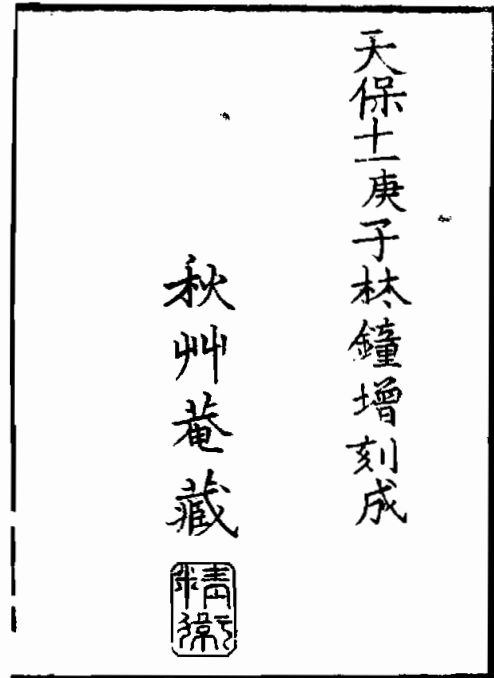 天保十一庚子林鐘増刻成
秋艸菴藏
精衛